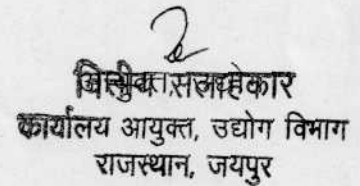 वित्तीय सलाहकार
कार्यालय आयुक्त, उद्योग विभाग
राजस्थान, जयपुर